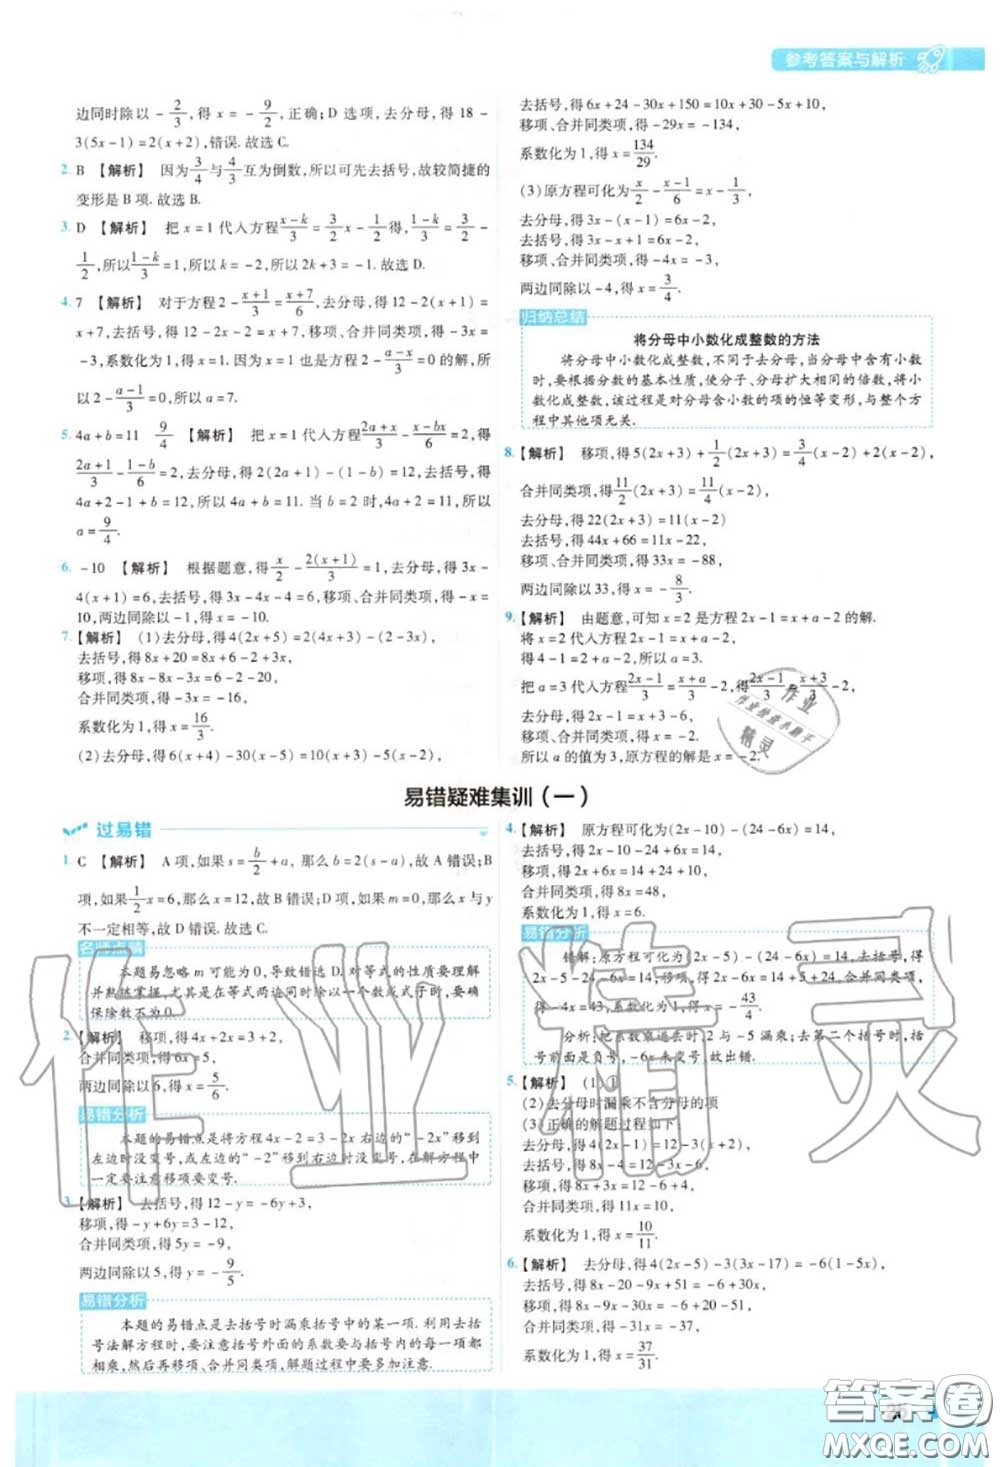 参考答案与解析
边同时除以 -2/3,得 x = -9/2,正确;D 选项,去分母,得 18 -
3(5x-1)=2(x+2),错误.故选C.
2. B 【解析】 因为3/4与4/3互为倒数,所以可先去括号,故较简捷的
变形是 B 项.故选B.
3. D 【解析】 把 x=1 代入方程(x-k)/3=3/2x-1/2得,(1-k)/3=3/2-
1/2,所以(1-k)/3=1,所以 k=-2,所以2k+3=-1.故选D.
4. 7 【解析】 对于方程2-(x+1)/3=(x+7)/6,去分母,得12-2(x+1)=
x+7,去括号,得12-2x-2=x+7,移项、合并同类项,得-3x=
-3,系数化为1,得x=1.因为 x=1 也是方程2-(a-x)/3=0的解,所
以2-(a-1)/3=0,所以 a=7.
5. 4a+b=11 9/4 【解析】 把 x=1 代入方程(2a+x)/3-(x-bx)/6=2,得
(2a+1)/3-(1-b)/6=2,去分母,得2(2a+1)-(1-b)=12,去括号,得
4a+2-1+b=12,所以 4a+b=11.当 b=2 时,4a=9,所以
a=9/4.
6. -10 【解析】 根据题意,得x/2-2(x+1)/3=1,去分母,得3x-
4(x+1)=6,去括号,得3x-4x-4=6,移项、合并同类项,得-x=
10,两边同除以-1,得x=-10.
7.【解析】 (1)去分母,得4(2x+5)=3(4x-3)-(2-3x),
去括号,得8x+20=8x-6-2+3x,
移项,得8x-8x-3x=-6-2-20,
合并同类项,得-3x=-16,
系数化为1,得 x=16/3.
(2)去分母,得6(x+4)-30(x-5)=10(x+3)-15(x-2),
去括号,得6x+24-30x+150=10x+30-5x+10,
移项、合并同类项,得-29x=-134,
系数化为1,得 x=134/29.
(3)原方程可化为x/2-(x-1)/6=x-1/3,
去分母,得3x-(x-1)=6x-2,
去括号,得3x-x+1=6x-2,
移项、合并同类项,得-4x=-3,
两边同除以-4,得 x=3/4.
归纳总结
将分母中小数化成整数的方法
将分母中小数化成整数,不同于去分母,当分母中含有小数
时,要根据分数的基本性质,使分子、分母扩大相同的倍数,将小
数化成整数,该过程是对分母含小数的项的恒等变形,与整个方
程中其他项无关.
8.【解析】 移项,得5(2x+3)+1/2(2x+3)=3/4(x-2)+2(x-2),
合并同类项,得11/2(2x+3)=11/4(x-2),
去分母,得22(2x+3)=11(x-2)
去括号,得44x+66=11x-22,
移项、合并同类项,得33x=-88,
两边同除以33,得 x=-8/3.
9.【解析】 由题意,可知 x=2 是方程2x-1=x+a-2的解.
将 x=2 代入方程2x-1=x+a-2,
得 4-1=2+a-2,所以 a=3.
把 a=3 代入方程(2x-1)/3=(x+a)/3-2,得(2x-1)/3=(x+3)/3-2,
去分母,得2x-1=x+3-6,
移项、合并同类项,得x=-2.
所以 a 的值为3,原方程的解是 x=-2.
作业
精灵
易错疑难集训(一)
过易错
1. C 【解析】 A 项,如果 s=b/2+a,那么 b=2(s-a),故 A 错误;B
项,如果1/2x=6,那么 x=12,故 B 错误;D 项,如果 m=0,那么 x 与 y
不一定相等,故 D 错误.故选C.
名师点睛
本题易忽略 m 可能为0,导致错选D.对等式的性质要理解
并熟练掌握,尤其是在等式两边同时除以一个数或式子时,要确
保除数不为0.
2.【解析】 移项,得4x+2x=3+2,
合并同类项,得6x=5,
两边同除以6,得 x=5/6.
易错分析
本题的易错点是将方程4x-2=3-2x右边的“-2x”移到
左边时没变号,或左边的“-2”移到右边时没变号,在解方程中
一定要注意移项要变号.
3.【解析】 去括号,得12-y=-6y+3,
移项,得-y+6y=3-12,
合并同类项,得5y=-9,
两边同除以5,得 y=-9/5.
易错分析
本题的易错点是去括号时漏乘括号中的某一项.利用去括
号法解方程时,要注意括号外面的系数要与括号内的每一项都
相乘,然后再移项、合并同类项,解题过程中要多加注意.
4.【解析】 原方程可化为(2x-10)-(24-6x)=14,
去括号,得2x-10-24+6x=14,
移项,得2x+6x=14+10+24,
合并同类项,得8x=48,
系数化为1,得 x=6.
易错分析
错解:原方程可化为(2x-5)-(24-6x)=14,去括号,得
2x-5-24-6x=14,移项,得2x-6x=14+5+24,合并同类项,
得-4x=43,系数化为1,得 x=-43/4.
分析:把系数乘进去时,2与-5漏乘;去第二个括号时,括
号前面是负号,-6x未变号,故出错.
5.【解析】 (1)①
(2)去分母时漏乘不含分母的项
(3)正确的解题过程如下:
去分母,得4(2x-1)=12-3(x+2),
去括号,得8x-4=12-3x-6,
移项,得8x+3x=12-6+4,
合并同类项,得11x=10,
系数化为1,得 x=10/11.
6.【解析】 去分母,得4(2x-5)-3(3x-17)=6(5x-1),
去括号,得8x-20-9x+51=30x-6,
移项,得8x-9x-30x=-6-51+20,
合并同类项,得-31x=-37,
系数化为1,得 x=37/31.
作业精灵
答案圈
MXQE.COM